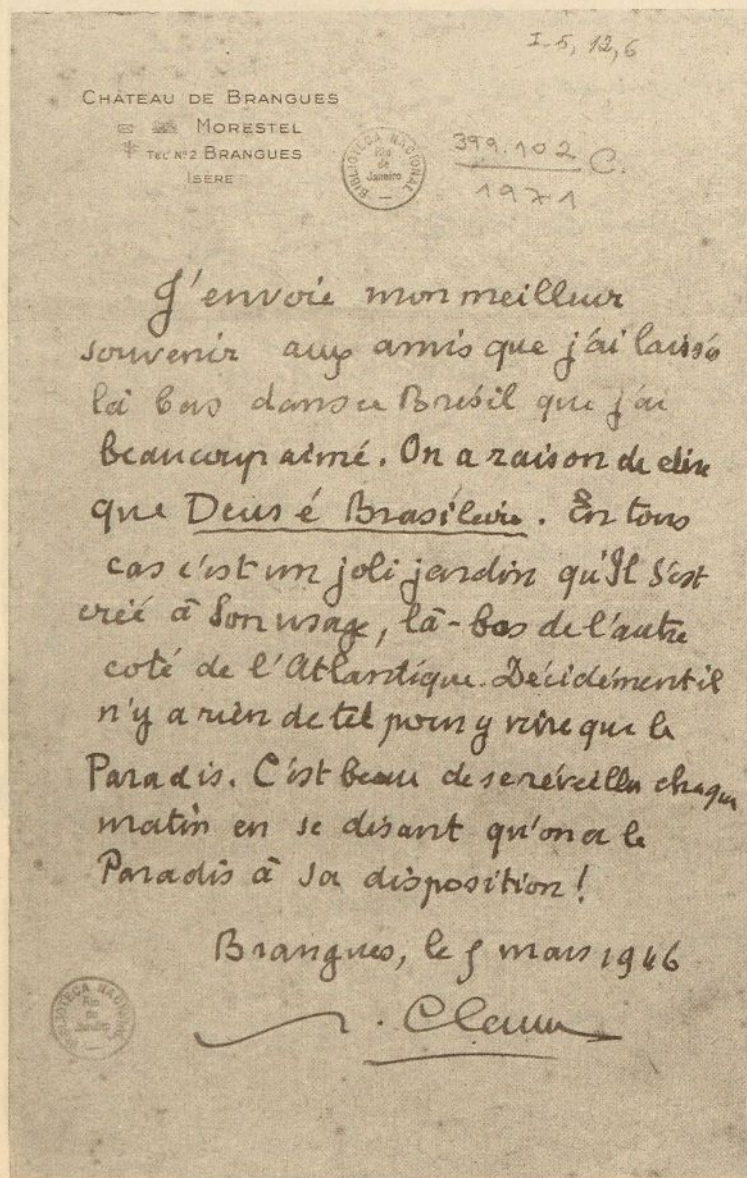 I-5, 12, 6
CHÂTEAU DE BRANGUES
MORESTEL
TEL Nº 2 BRANGUES
ISÈRE
BIBLIOTECA NACIONAL
Rio de Janeiro
399.102 C.
1971
J'envoie mon meilleur
souvenir aux amis que j'ai laissés
là bas dans ce Brésil que j'ai
beaucoup aimé. On a raison de dire
que Deus é Brasileiro. En tous
cas c'est un joli jardin qu'Il S'est
créé à Son usage, là-bas de l'autre
coté de l'Atlantique. Décidément il
n'y a rien de tel pour y vivre que le
Paradis. C'est beau de se réveiller chaque
matin en se disant qu'on a le
Paradis à sa disposition !
Brangues, le 5 mars 1946
BIBLIOTECA NACIONAL